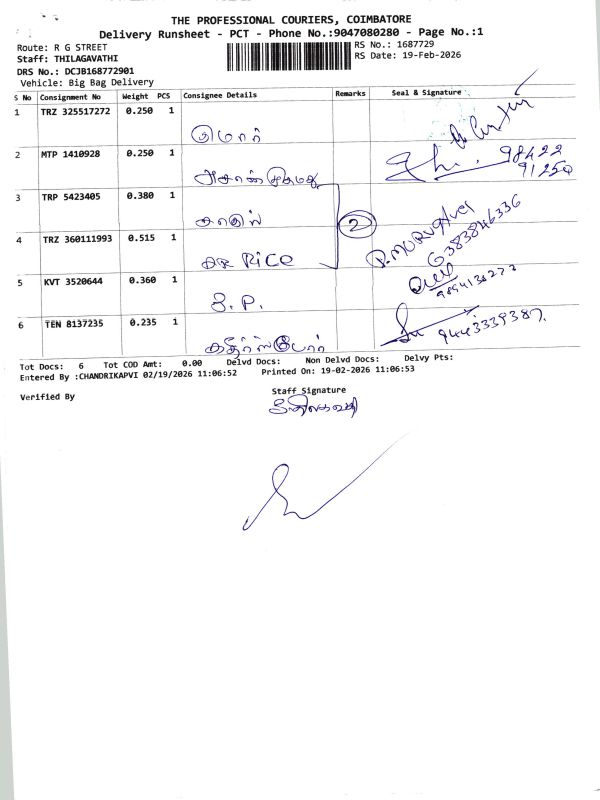 THE PROFESSIONAL COURIERS, COIMBATORE
Delivery Runsheet - PCT - Phone No.:9047080280 - Page No.:1
Route: R G STREET
RS No.: 1687729
Staff: THILAGAVATHI
RS Date: 19-Feb-2026
DRS No.: DCJB168772901
Vehicle: Big Bag Delivery
S No Consignment No Weight PCS Consignee Details Remarks Seal & Signature
1 TRZ 325517272 0.250 1
2 MTP 1410928 0.250 1
98422
91250
3 TRP 5423405 0.380 1
2
P. MURUGAvel
6383846336
4 TRZ 360111993 0.515 1
RICE
5 KVT 3520644 0.360 1
S.P.
6 TEN 8137235 0.235 1
9443339387.
Tot Docs: 6 Tot COD Amt: 0.00 Delvd Docs: Non Delvd Docs: Delvy Pts:
Entered By :CHANDRIKAPVI 02/19/2026 11:06:52 Printed On: 19-02-2026 11:06:53
Verified By
Staff Signature